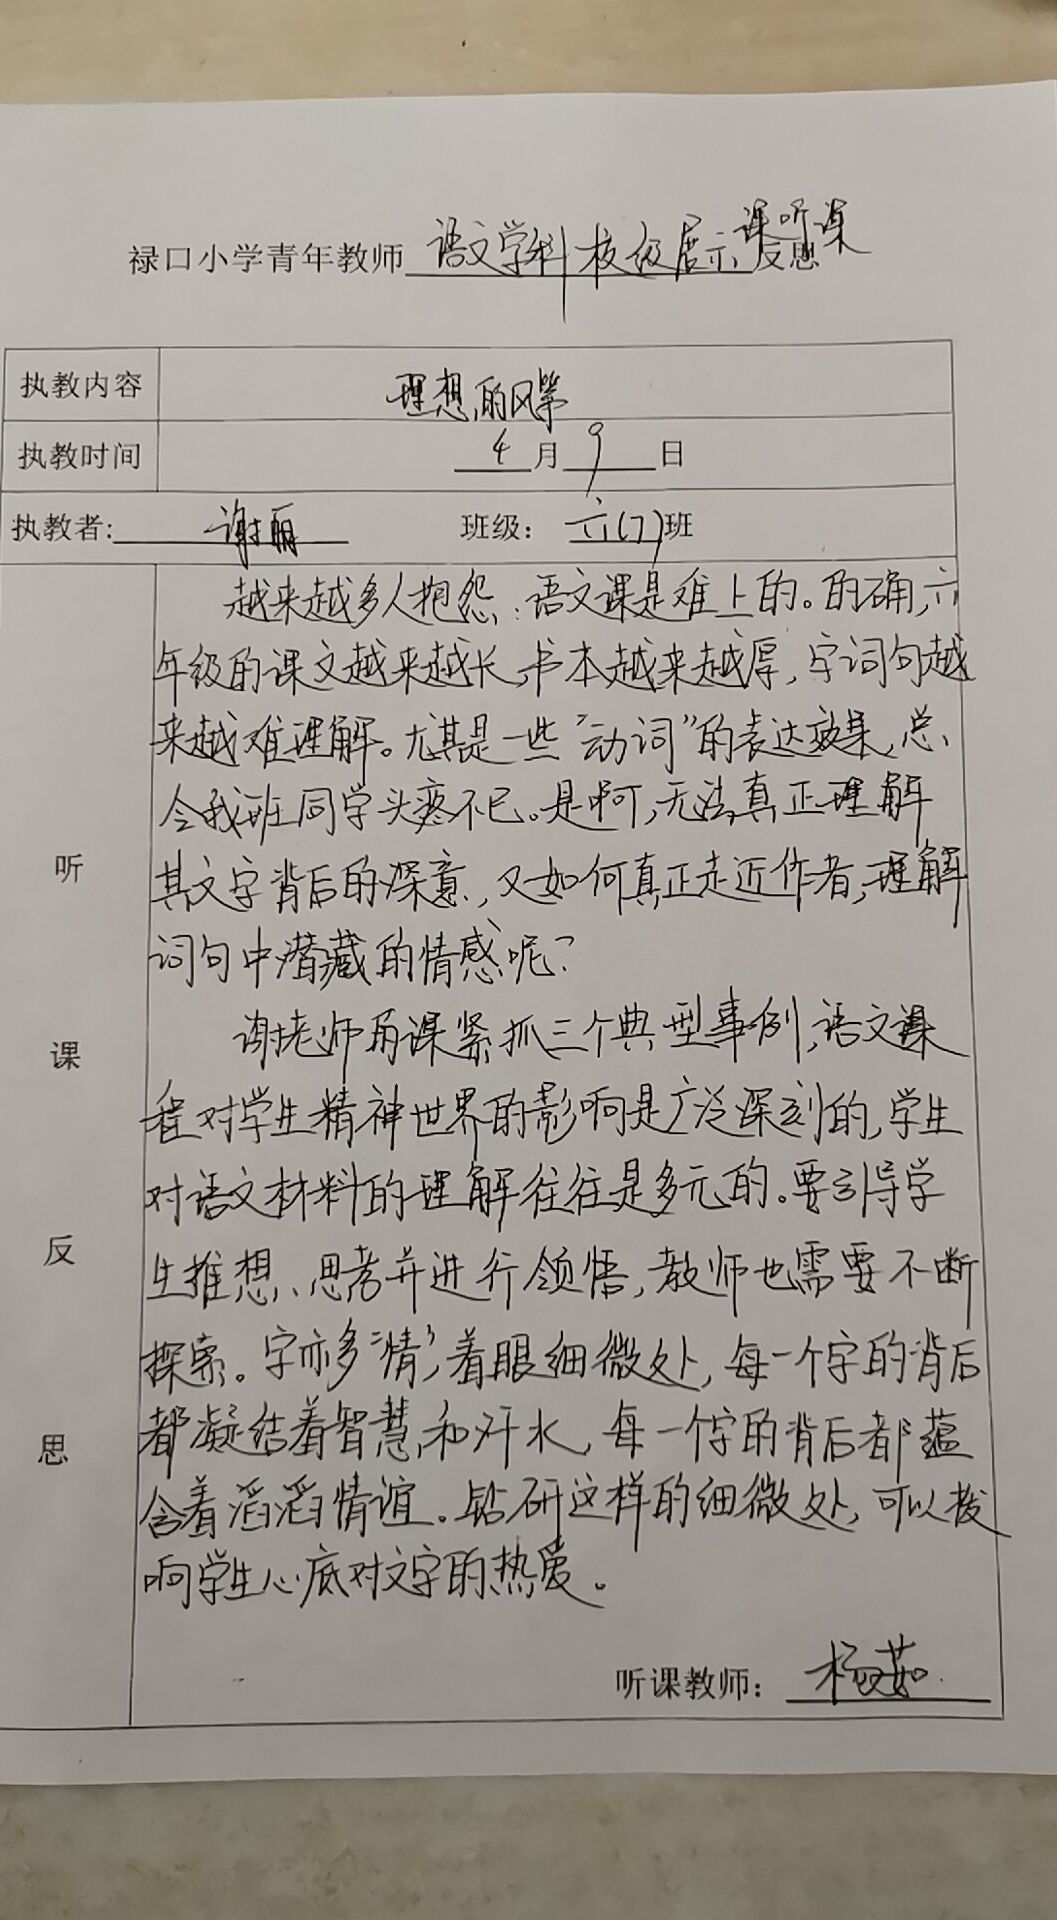 禄口小学青年教师 语文学科校级展示课听课反思
执教内容 理想的风筝
执教时间 4月9日
执教者: 谢丽 班级: 六(7)班
听课反思
越来越多人抱怨:语文课是难上的。的确,六
年级的课文越来越长,书本越来越厚,字词句越
来越难理解。尤其是一些“动词”的表达效果,总
令我班同学头疼不已。是啊,无法真正理解
其文字背后的深意,又如何真正走近作者,理解
词句中潜藏的情感呢?
谢老师的课紧抓三个典型事例,语文课
程对学生精神世界的影响是广泛深刻的,学生
对语文材料的理解往往是多元的。要引导学
生推想、思考并进行领悟,教师也需要不断
探索。字亦多“情”,着眼细微处,每一个字的背后
都凝结着智慧和汗水,每一个字的背后都蕴
含着滔滔情谊。钻研这样的细微处,可以拨
响学生心底对文字的热爱。
听课教师: 杨茹